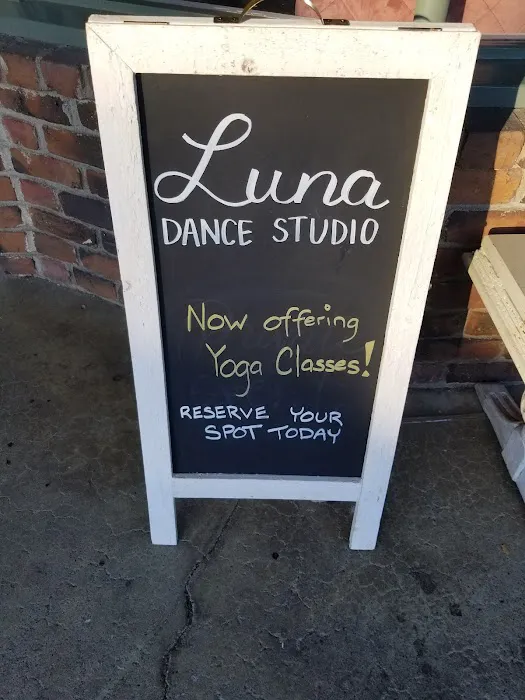 Luna
DANCE STUDIO
Now offering
Yoga Classes!
RESERVE YOUR
SPOT TODAY